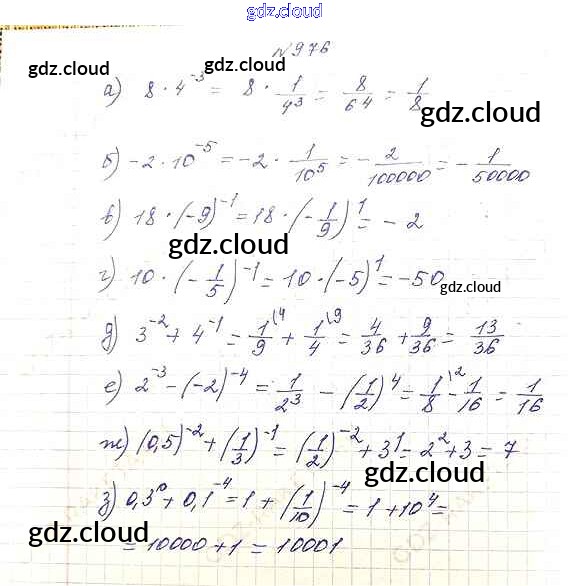 gdz.cloud
№976
gdz.cloud
а) 8 · 4⁻³ = 8 · 1/4³ = 8/64 = 1/8
gdz.cloud
б) -2 · 10⁻⁵ = -2 · 1/10⁵ = - 2/100000 = - 1/50000
в) 18 · (-9)⁻¹ = 18 · (- 1/9)¹ = - 2
gdz.cloud
г) 10 · (- 1/5)⁻¹ = 10 · (-5)¹ = -50
gdz.cloud
д) 3⁻² + 4⁻¹ = 1/9 \4 + 1/4 \9 = 4/36 + 9/36 = 13/36
е) 2⁻³ - (-2)⁻⁴ = 1/2³ - (1/2)⁴ = 1/8 \2 - 1/16 = 1/16
ж) (0,5)⁻² + (1/3)⁻¹ = (1/2)⁻² + 3¹ = 2² + 3 = 7
gdz.cloud
з) 0,3⁰ + 0,1⁻⁴ = 1 + (1/10)⁻⁴ = 1 + 10⁴ =
= 10000 + 1 = 10001
gdz.cloud
gdz.cloud